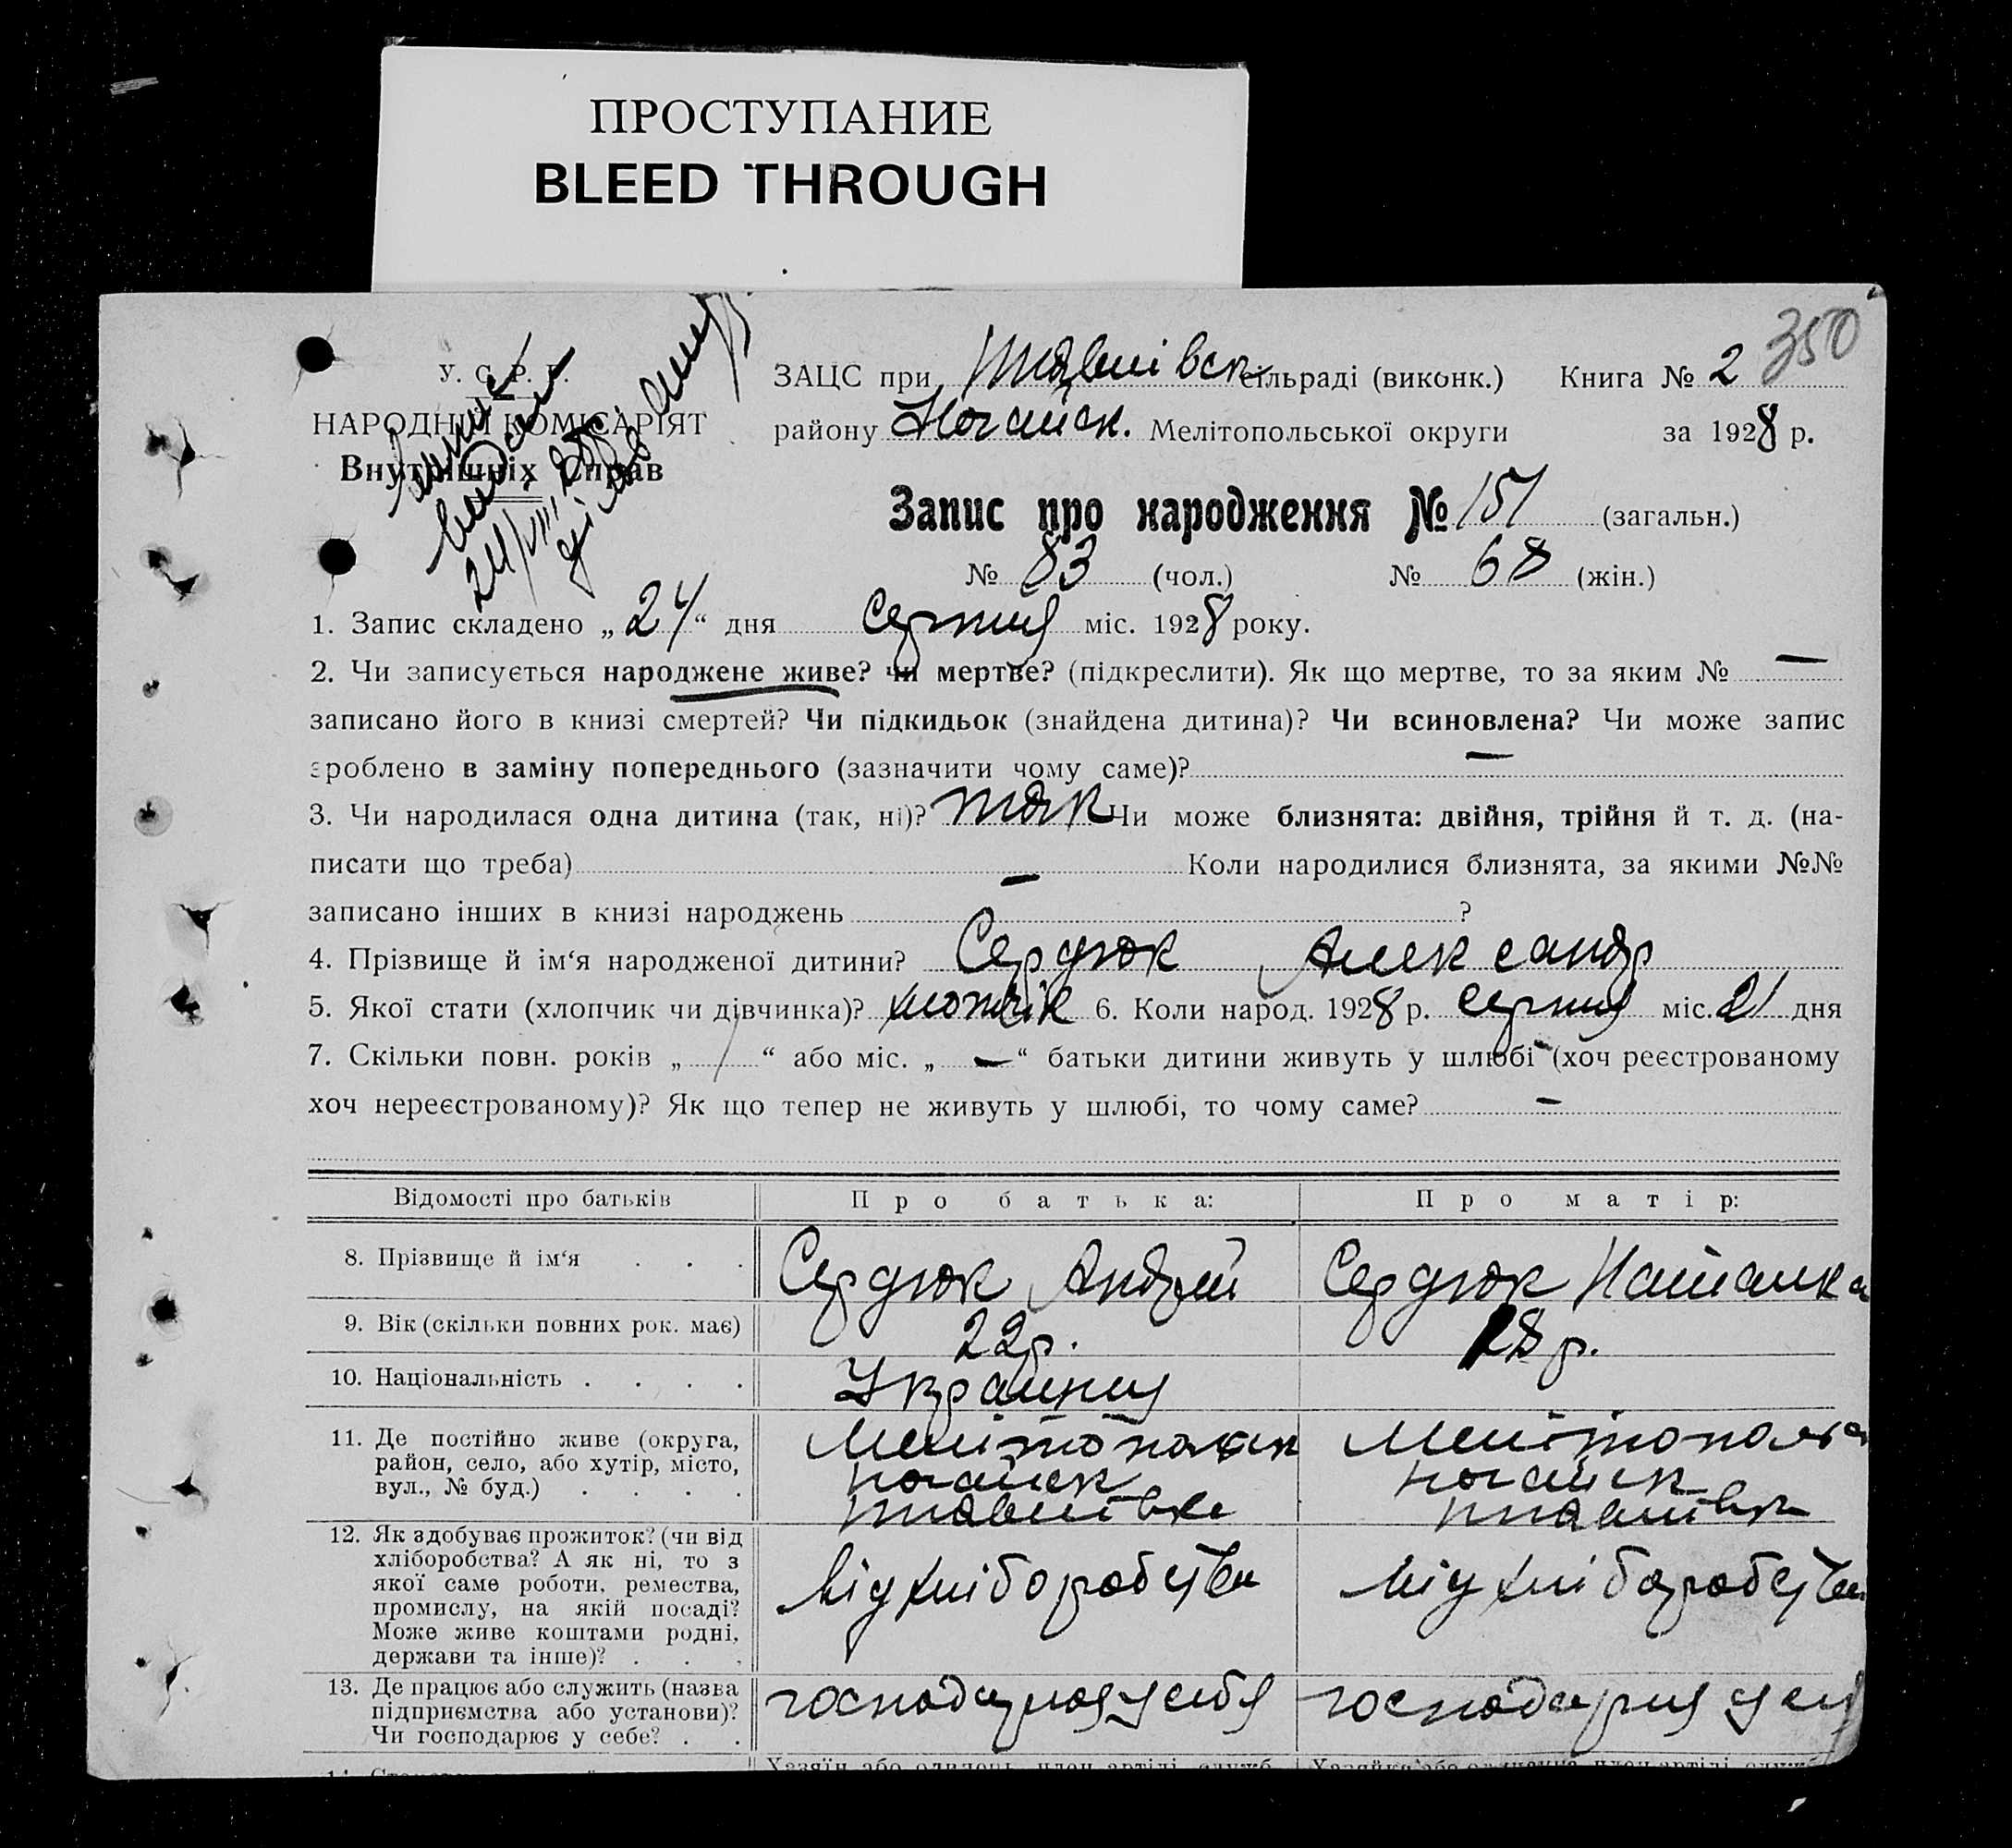 ПРОСТУПАНИЕ
BLEED THROUGH
350
У. С. Р. Р.
НАРОДНІЙ КОМІСАРІЯТ
Внутрішніх Справ
ЗАЦС при сільраді (виконк.) Книга № 2
району Ногайск. Мелітопольської округи за 1928 р.
Запис про народження № 151 (загальн.)
№ 83 (чол.) № 68 (жін.)
1. Запис складено „24“ дня Серпня міс. 1928 року.
2. Чи записується народжене живе? чи мертве? (підкреслити). Як що мертве, то за яким № —
записано його в книзі смертей? Чи підкидьок (знайдена дитина)? Чи всиновлена? Чи може запис
зроблено в заміну попереднього (зазначити чому саме)? —
3. Чи народилася одна дитина (так, ні)? так Чи може близнята: двійня, трійня й т. д. (на-
писати що треба) — Коли народилися близнята, за якими №№
записано інших в книзі народжень ?
4. Прізвище й ім‘я народженої дитини? Сердюк Александр
5. Якої стати (хлопчик чи дівчинка)? хлопчік 6. Коли народ. 1928 р. серпня міс. 21 дня
7. Скільки повн. років „ / “ або міс. „ — “ батьки дитини живуть у шлюбі (хоч реєстрованому
хоч нереєстрованому)? Як що тепер не живуть у шлюбі, то чому саме? —
Відомості про батьків Про батька: Про матір:
8. Прізвище й ім‘я . . . Сердюк Андрей Сердюк Наталка
9. Вік (скільки повних рок. має) 22 р. 18 р.
10. Національність . . . . Украинця
11. Де постійно живе (округа,
район, село, або хутір, місто,
вул., № буд.) . . . .
Мелітопольск
ногайск
Мелітополь
ногайск
12. Як здобуває прожиток? (чи від
хліборобства? А як ні, то з
якої саме роботи, ремества,
промислу, на якій посаді?
Може живе коштами родні,
держави та інше)? . . .
від хліборобства
від хліборобства
13. Де працює або служить (назва
підприємства або установи)?
Чи господарює у себе? . .
господарюя у себя
господарюя у
Хазяїн або одинець, член артілі, служб.